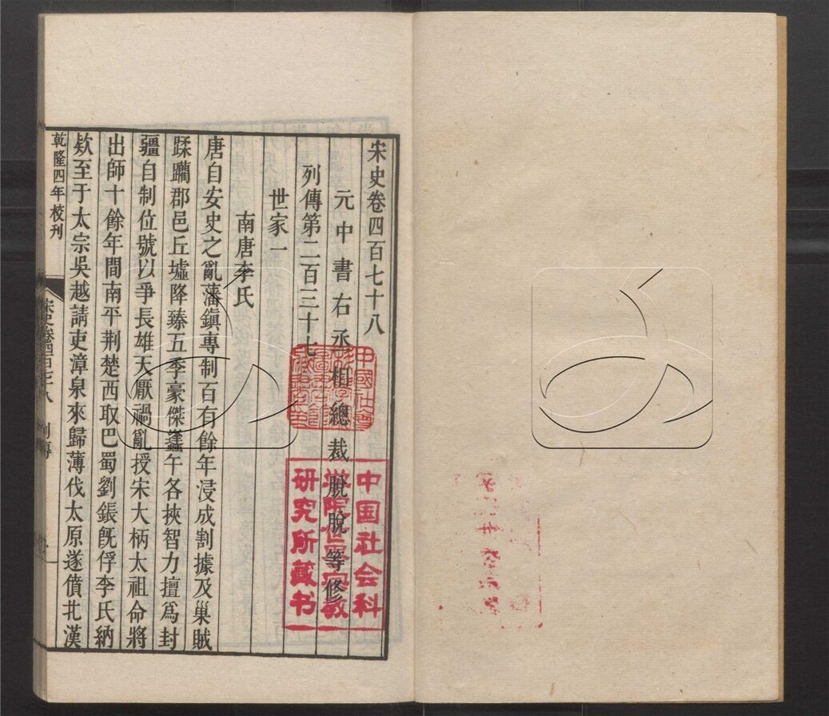 宋史卷四百七十八
元中書右丞相總裁脫脫等修
列傳第二百三十七
世家一
南唐李氏
唐自安史之亂藩鎭專制百有餘年浸成割據及巢賊
蹂躪郡邑丘墟降臻五季豪傑蠭午各挾智力擅爲封
疆自制位號以爭長雄天厭禍亂授宋大柄太祖命將
出師十餘年間南平荆楚西取巴蜀劉鋹旣俘李氏納
欵至于太宗吳越請吏漳泉來歸薄伐太原遂僨北漢
乾隆四年校刊
宋史卷四百七十八 列傳
中国社会科
学院世界宗教
研究所藏书